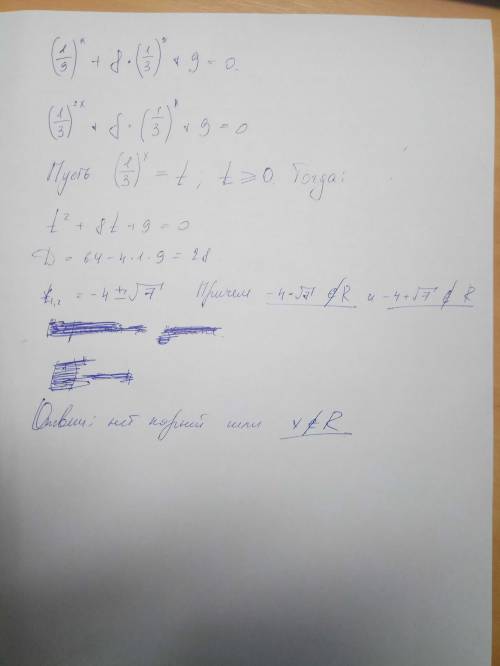 (1/9)^x + 8 · (1/3)^x + 9 = 0.
(1/3)^2x + 8 · (1/3)^x + 9 = 0
Пусть (1/3)^x = t; t ⩾ 0. Тогда:
t² + 8t + 9 = 0
D = 64 - 4 · 1 · 9 = 28
t₁,₂ = -4 ± √7 Причем -4-√7 ∉ R и -4+√7 ∉ R
Ответ: нет корней или x ∉ R